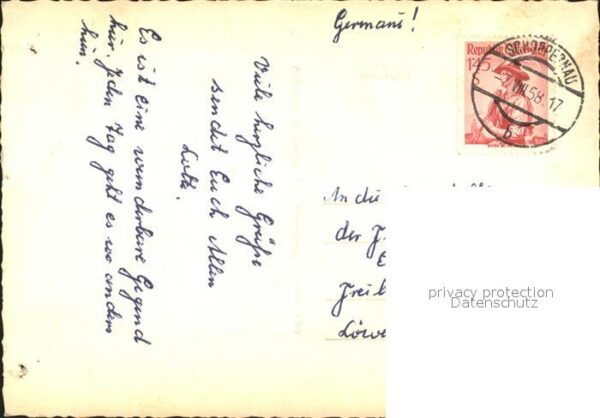 Germani!
Republik Österreich
1.45
S
SCHOPPERNAU
-7.VIII.58-17
b
Viele herzliche Grüße
sendet Euch Allen
Lotte.
Es ist eine wunderbare Gegend
hier. Jeden Tag geht es wo anders
hin.
An die
der F
Freib
Löwe
privacy protection
Datenschutz